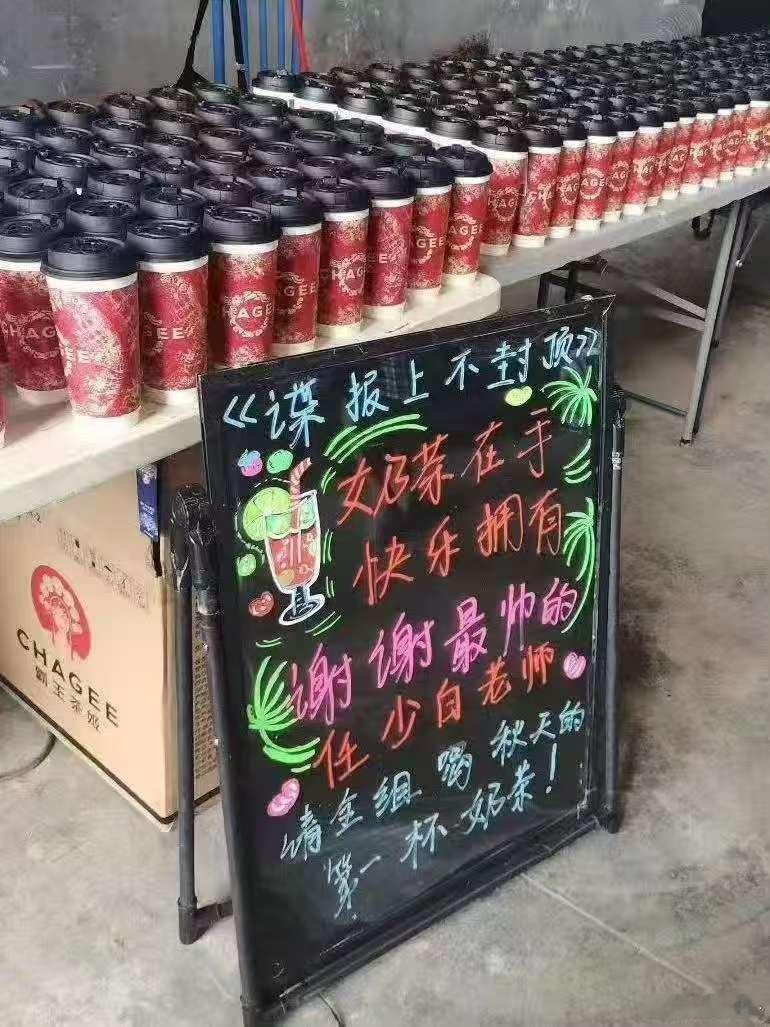 CHAGEE
CHAGEE
CHAGEE
CHAGEE
CHAGEE
CHAGEE
霸王茶姬
<<谍报上不封顶>>
奶茶在手
快乐拥有
谢谢最帅的
任少白老师
请全组喝秋天的
第一杯奶茶!